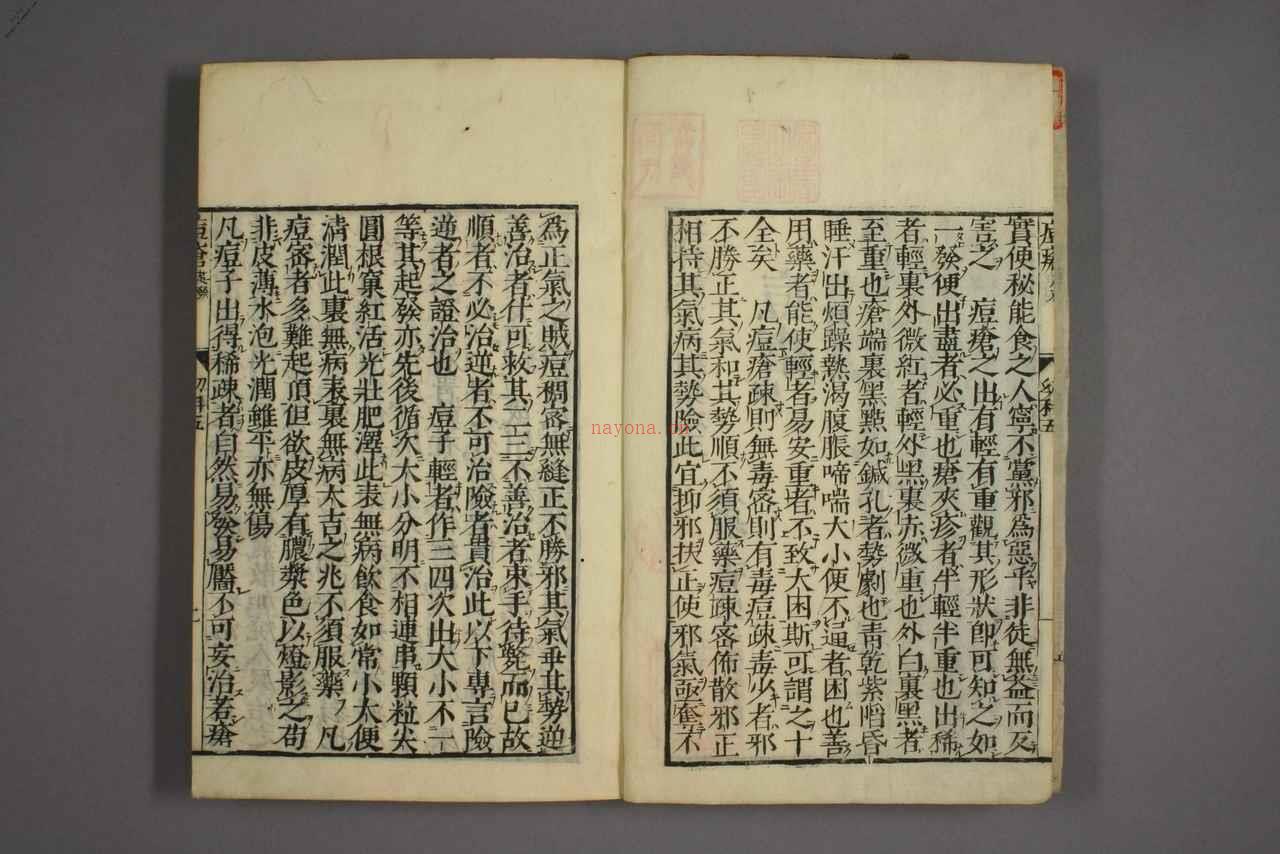 實便秘能食之人寧不黨邪爲惡乎非徒無益而反
害之　痘瘡之出有輕有重觀其形狀卽可知之如
一發便出盡者必重也瘡夾疹者半輕半重也出稀
者輕裏外微紅者輕外黑裏赤微重也外白裏黑者
至重也瘡端裏黑點如鍼孔者勢劇也靑乾紫陷昏
睡汗出煩躁熱渴腹脹啼喘大小便不通者困也善
用藥者能使輕者易安重者不致大困斯可謂之十
全矣　凡痘瘡疎則無毒密則有毒痘疎毒少者邪
不勝正其氣和其勢順不須服藥痘疎密佈散邪正
相持其氣病其勢險此宜抑邪扶正使邪氣亟奪不
爲正氣之賊痘稠密無縫正不勝邪其氣乖其勢逆
善治者什可救其二三不善治者束手待斃而已故
順者不必治逆者不可治險者貴治此以下專言險
逆者之證治也　痘子輕者作三四次出大小不一
等其起發亦先後循次大小分明不相連串顆粒尖
圓根窠紅活光壯肥澤此表無病飮食如常小大便
淸潤此裏無病表裏無病大吉之兆不須服藥　凡
痘密者多難起頂但欲皮厚有膿漿色以燈影之苟
非皮薄水泡光潤雖平亦無傷
凡痘子出得稀疎者自然易發易靨不可妄治若瘡
nayona.cn